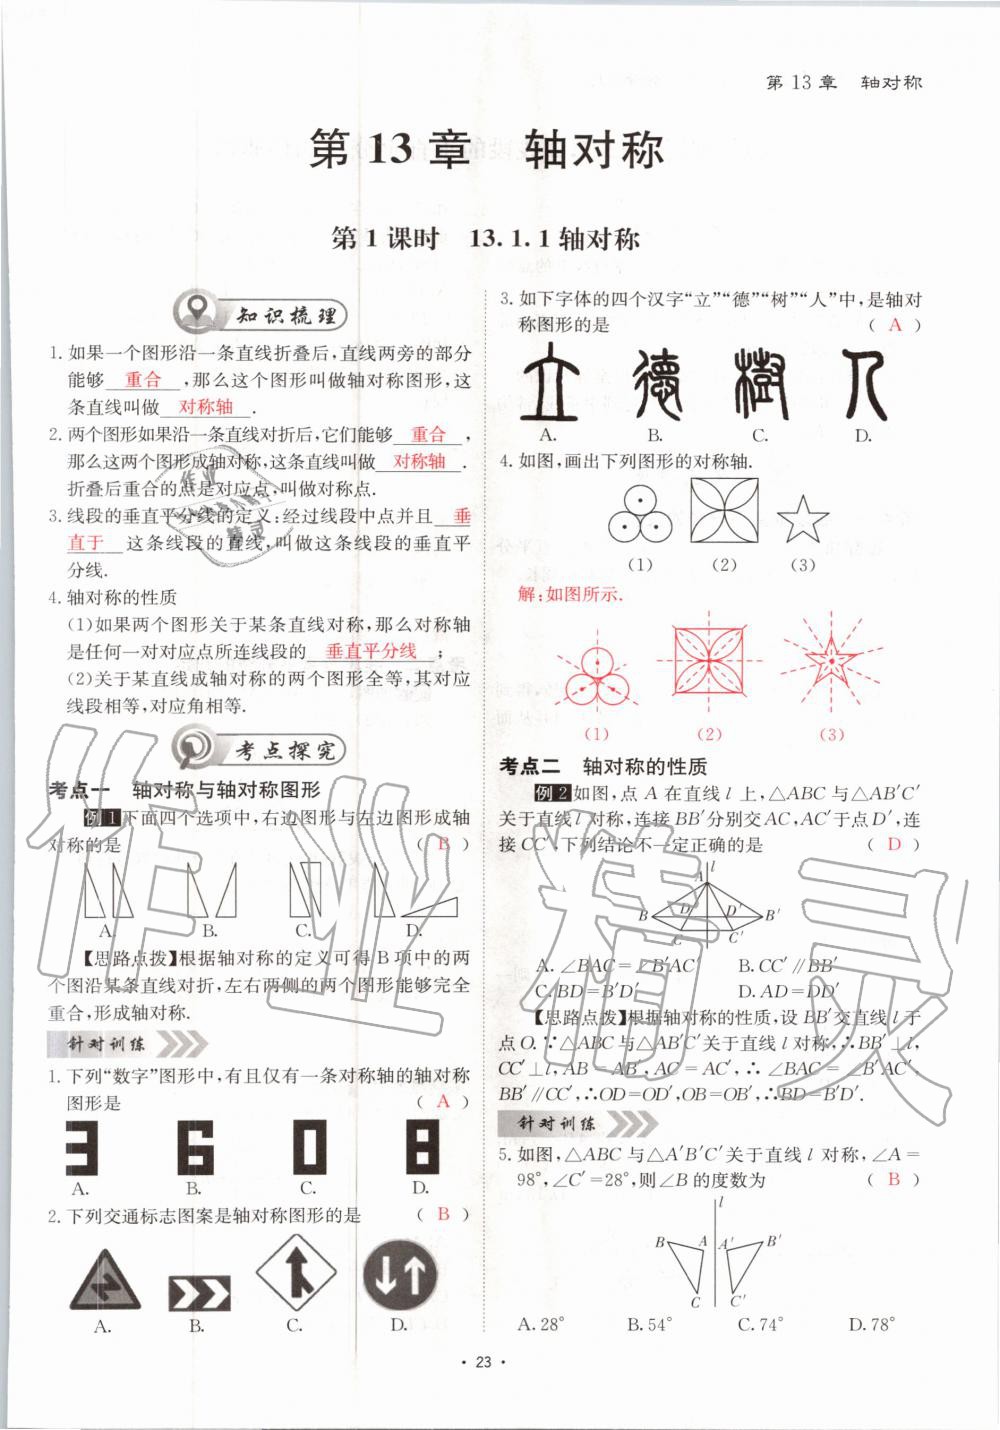 第13章 轴对称
第13章 轴对称
第1课时 13.1.1轴对称
知识梳理
1. 如果一个图形沿一条直线折叠后,直线两旁的部分
能够 重合 ,那么这个图形叫做轴对称图形,这
条直线叫做 对称轴 .
2. 两个图形如果沿一条直线对折后,它们能够 重合 ,
那么这两个图形成轴对称,这条直线叫做 对称轴 .
折叠后重合的点是对应点,叫做对称点.
3. 线段的垂直平分线的定义:经过线段中点并且 垂
直于 这条线段的直线,叫做这条线段的垂直平
分线.
4. 轴对称的性质
(1)如果两个图形关于某条直线对称,那么对称轴
是任何一对对应点所连线段的 垂直平分线 ;
(2)关于某直线成轴对称的两个图形全等,其对应
线段相等,对应角相等.
考点探究
考点一 轴对称与轴对称图形
例1 下面四个选项中,右边图形与左边图形成轴
对称的是 ( B )
A. B. C. D.
【思路点拨】根据轴对称的定义可得B项中的两
个图沿某条直线对折,左右两侧的两个图形能够完全
重合,形成轴对称.
针对训练
1. 下列“数字”图形中,有且仅有一条对称轴的轴对称
图形是 ( A )
3 6 0 8
A. B. C. D.
2. 下列交通标志图案是轴对称图形的是 ( B )
A. B. C. D.
3. 如下字体的四个汉字“立”“德”“树”“人”中,是轴对
称图形的是 ( A )
立 德 樹 人
A. B. C. D.
4. 如图,画出下列图形的对称轴.
(1) (2) (3)
解:如图所示.
(1) (2) (3)
考点二 轴对称的性质
例2 如图,点A在直线l上,△ABC与△AB′C′
关于直线l对称,连接BB′分别交AC,AC′于点D′,连
接CC′,下列结论不一定正确的是 ( D )
l
A
B D D′ B′
C C′
A.∠BAC=∠B′AC′ B.CC′∥BB′
C.BD=B′D′ D.AD=DD′
【思路点拨】根据轴对称的性质,设BB′交直线l于
点O.∵△ABC与△AB′C′关于直线l对称,∴BB′⊥l,
CC′⊥l,AB=AB′,AC=AC′,∴∠BAC=∠B′AC′,
BB′∥CC′,∴OD=OD′,OB=OB′,∴BD=B′D′.
针对训练
5. 如图,△ABC与△A′B′C′关于直线l对称,∠A=
98°,∠C′=28°,则∠B的度数为 ( B )
l
B A A′ B′
C C′
A.28° B.54° C.74° D.78°
• 23 •
作业精灵